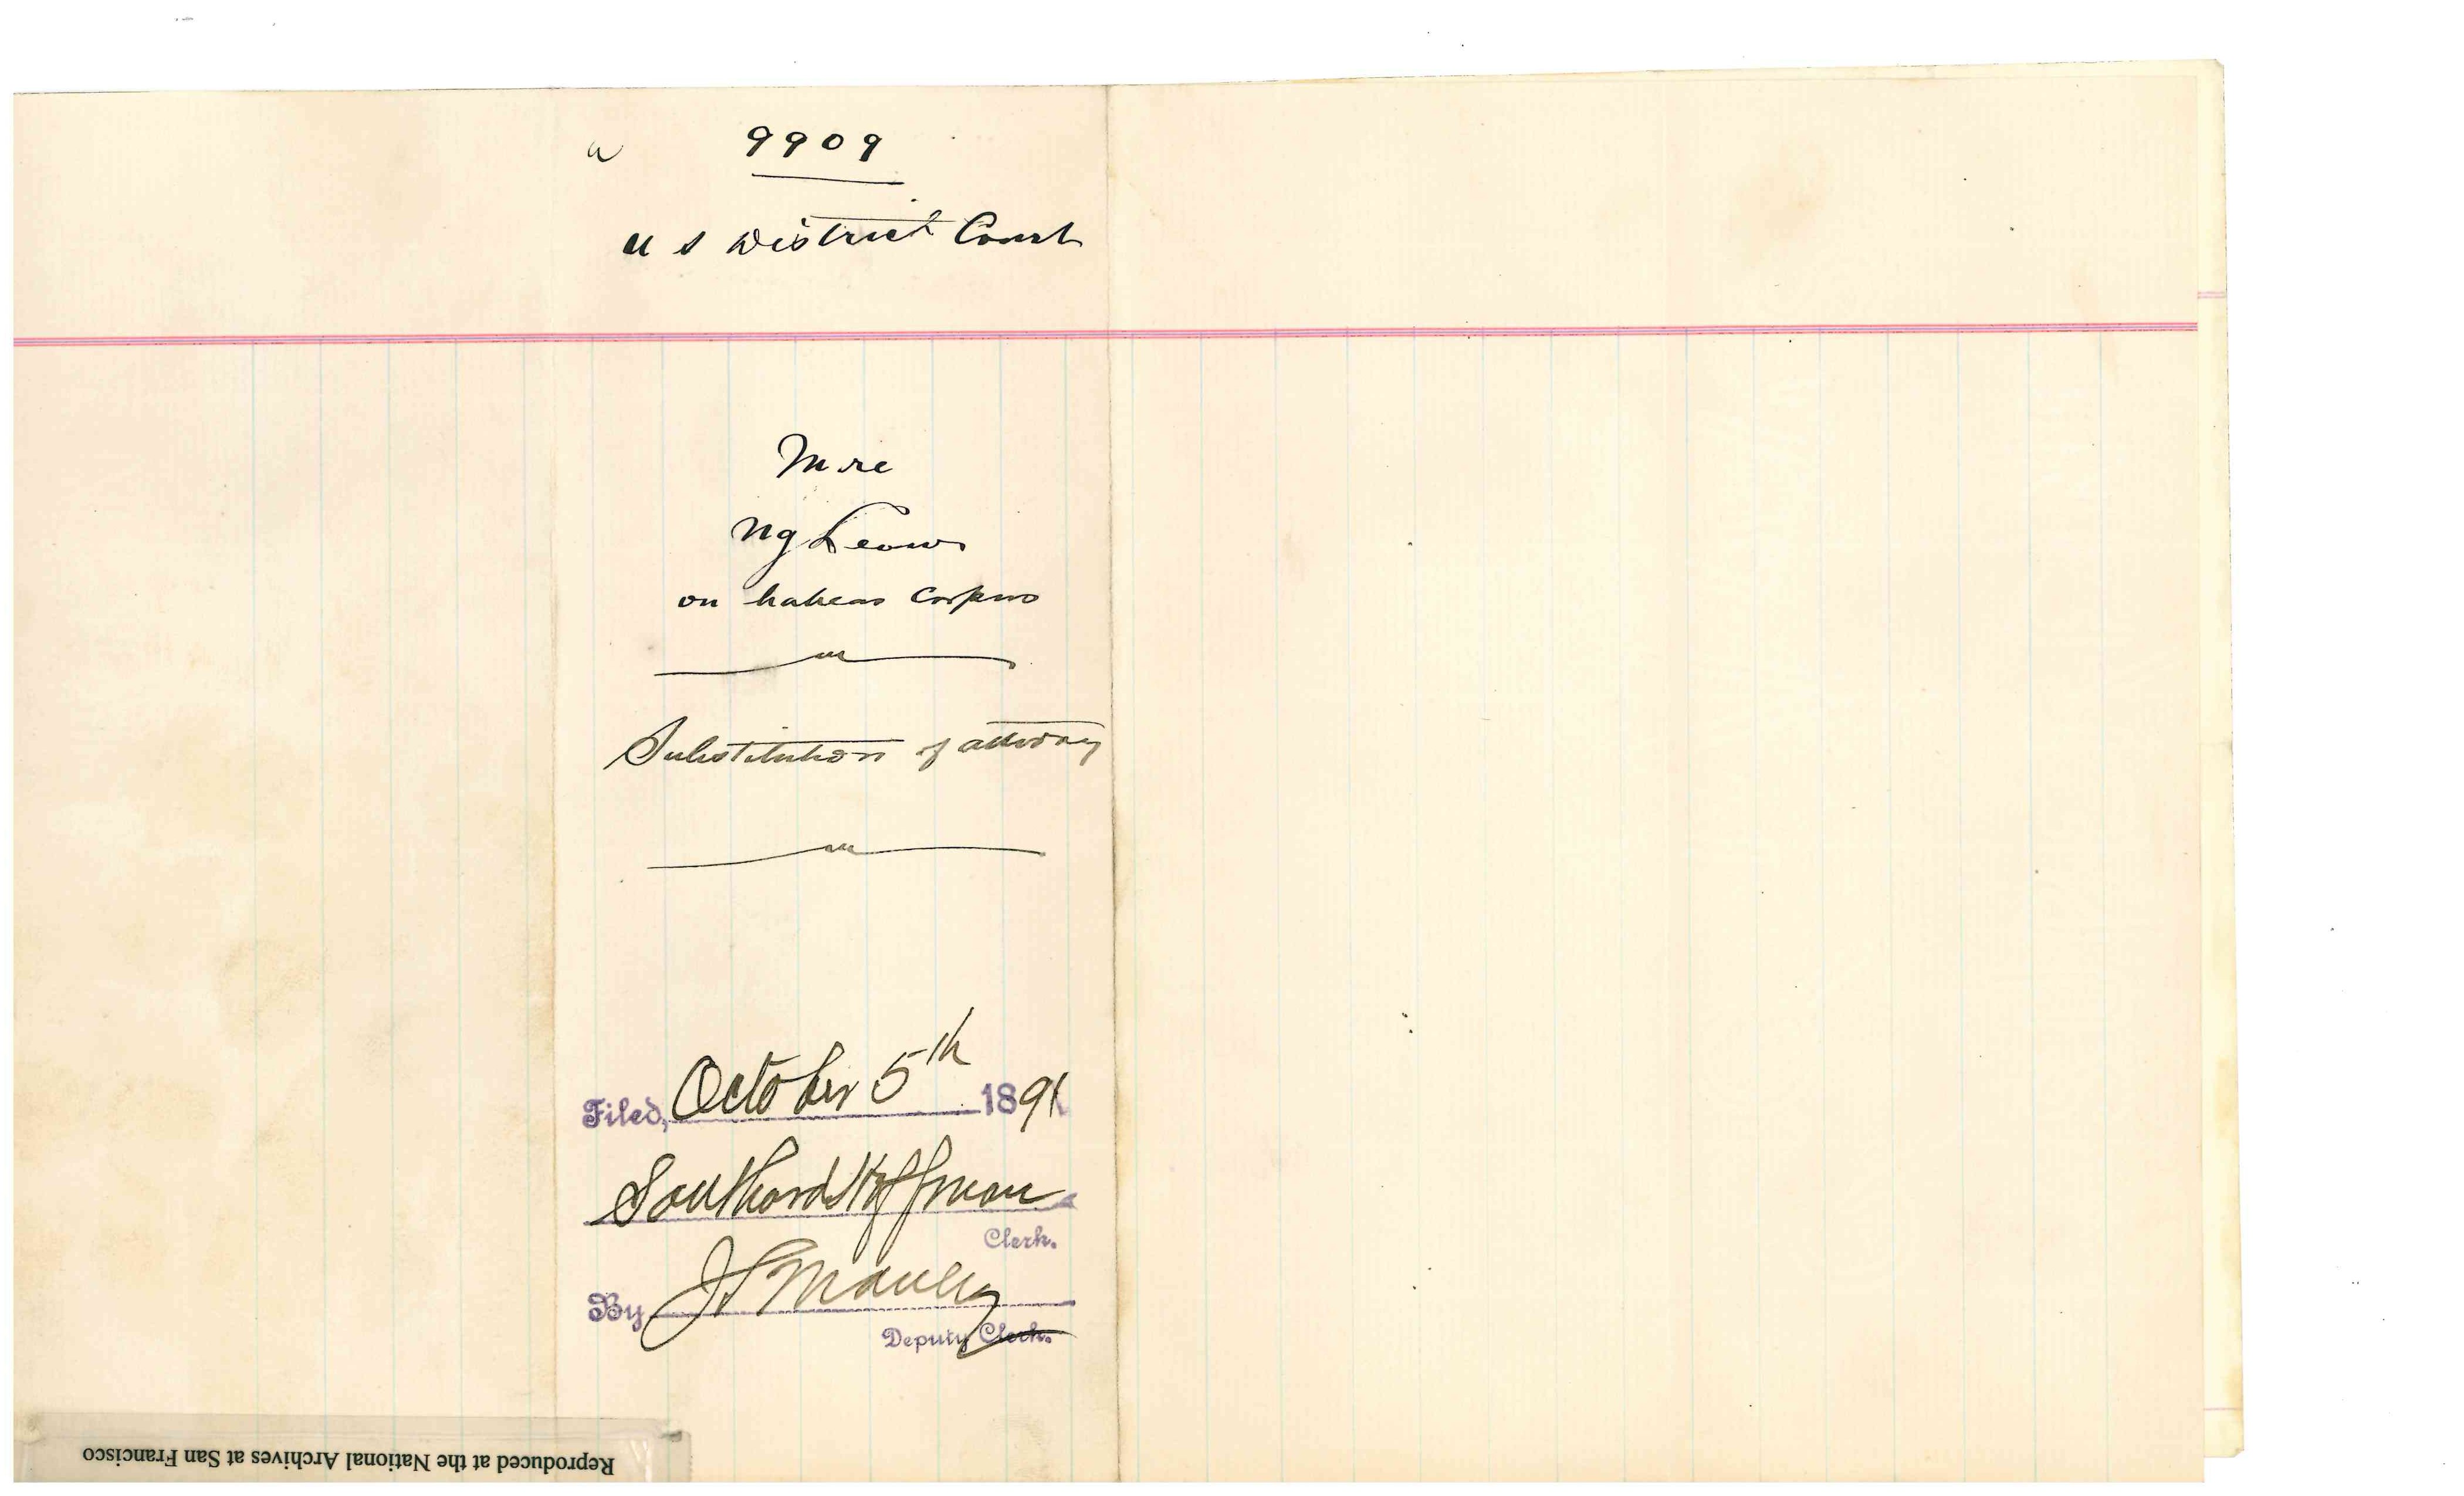 9909
U S District Court
In re
Ng
on habeas corpus
Substitution of attorney
Filed, October 5th 1891
Southard Hoffman
Clerk.
By J S Manley
Deputy Clerk.
Reproduced at the National Archives at San Francisco